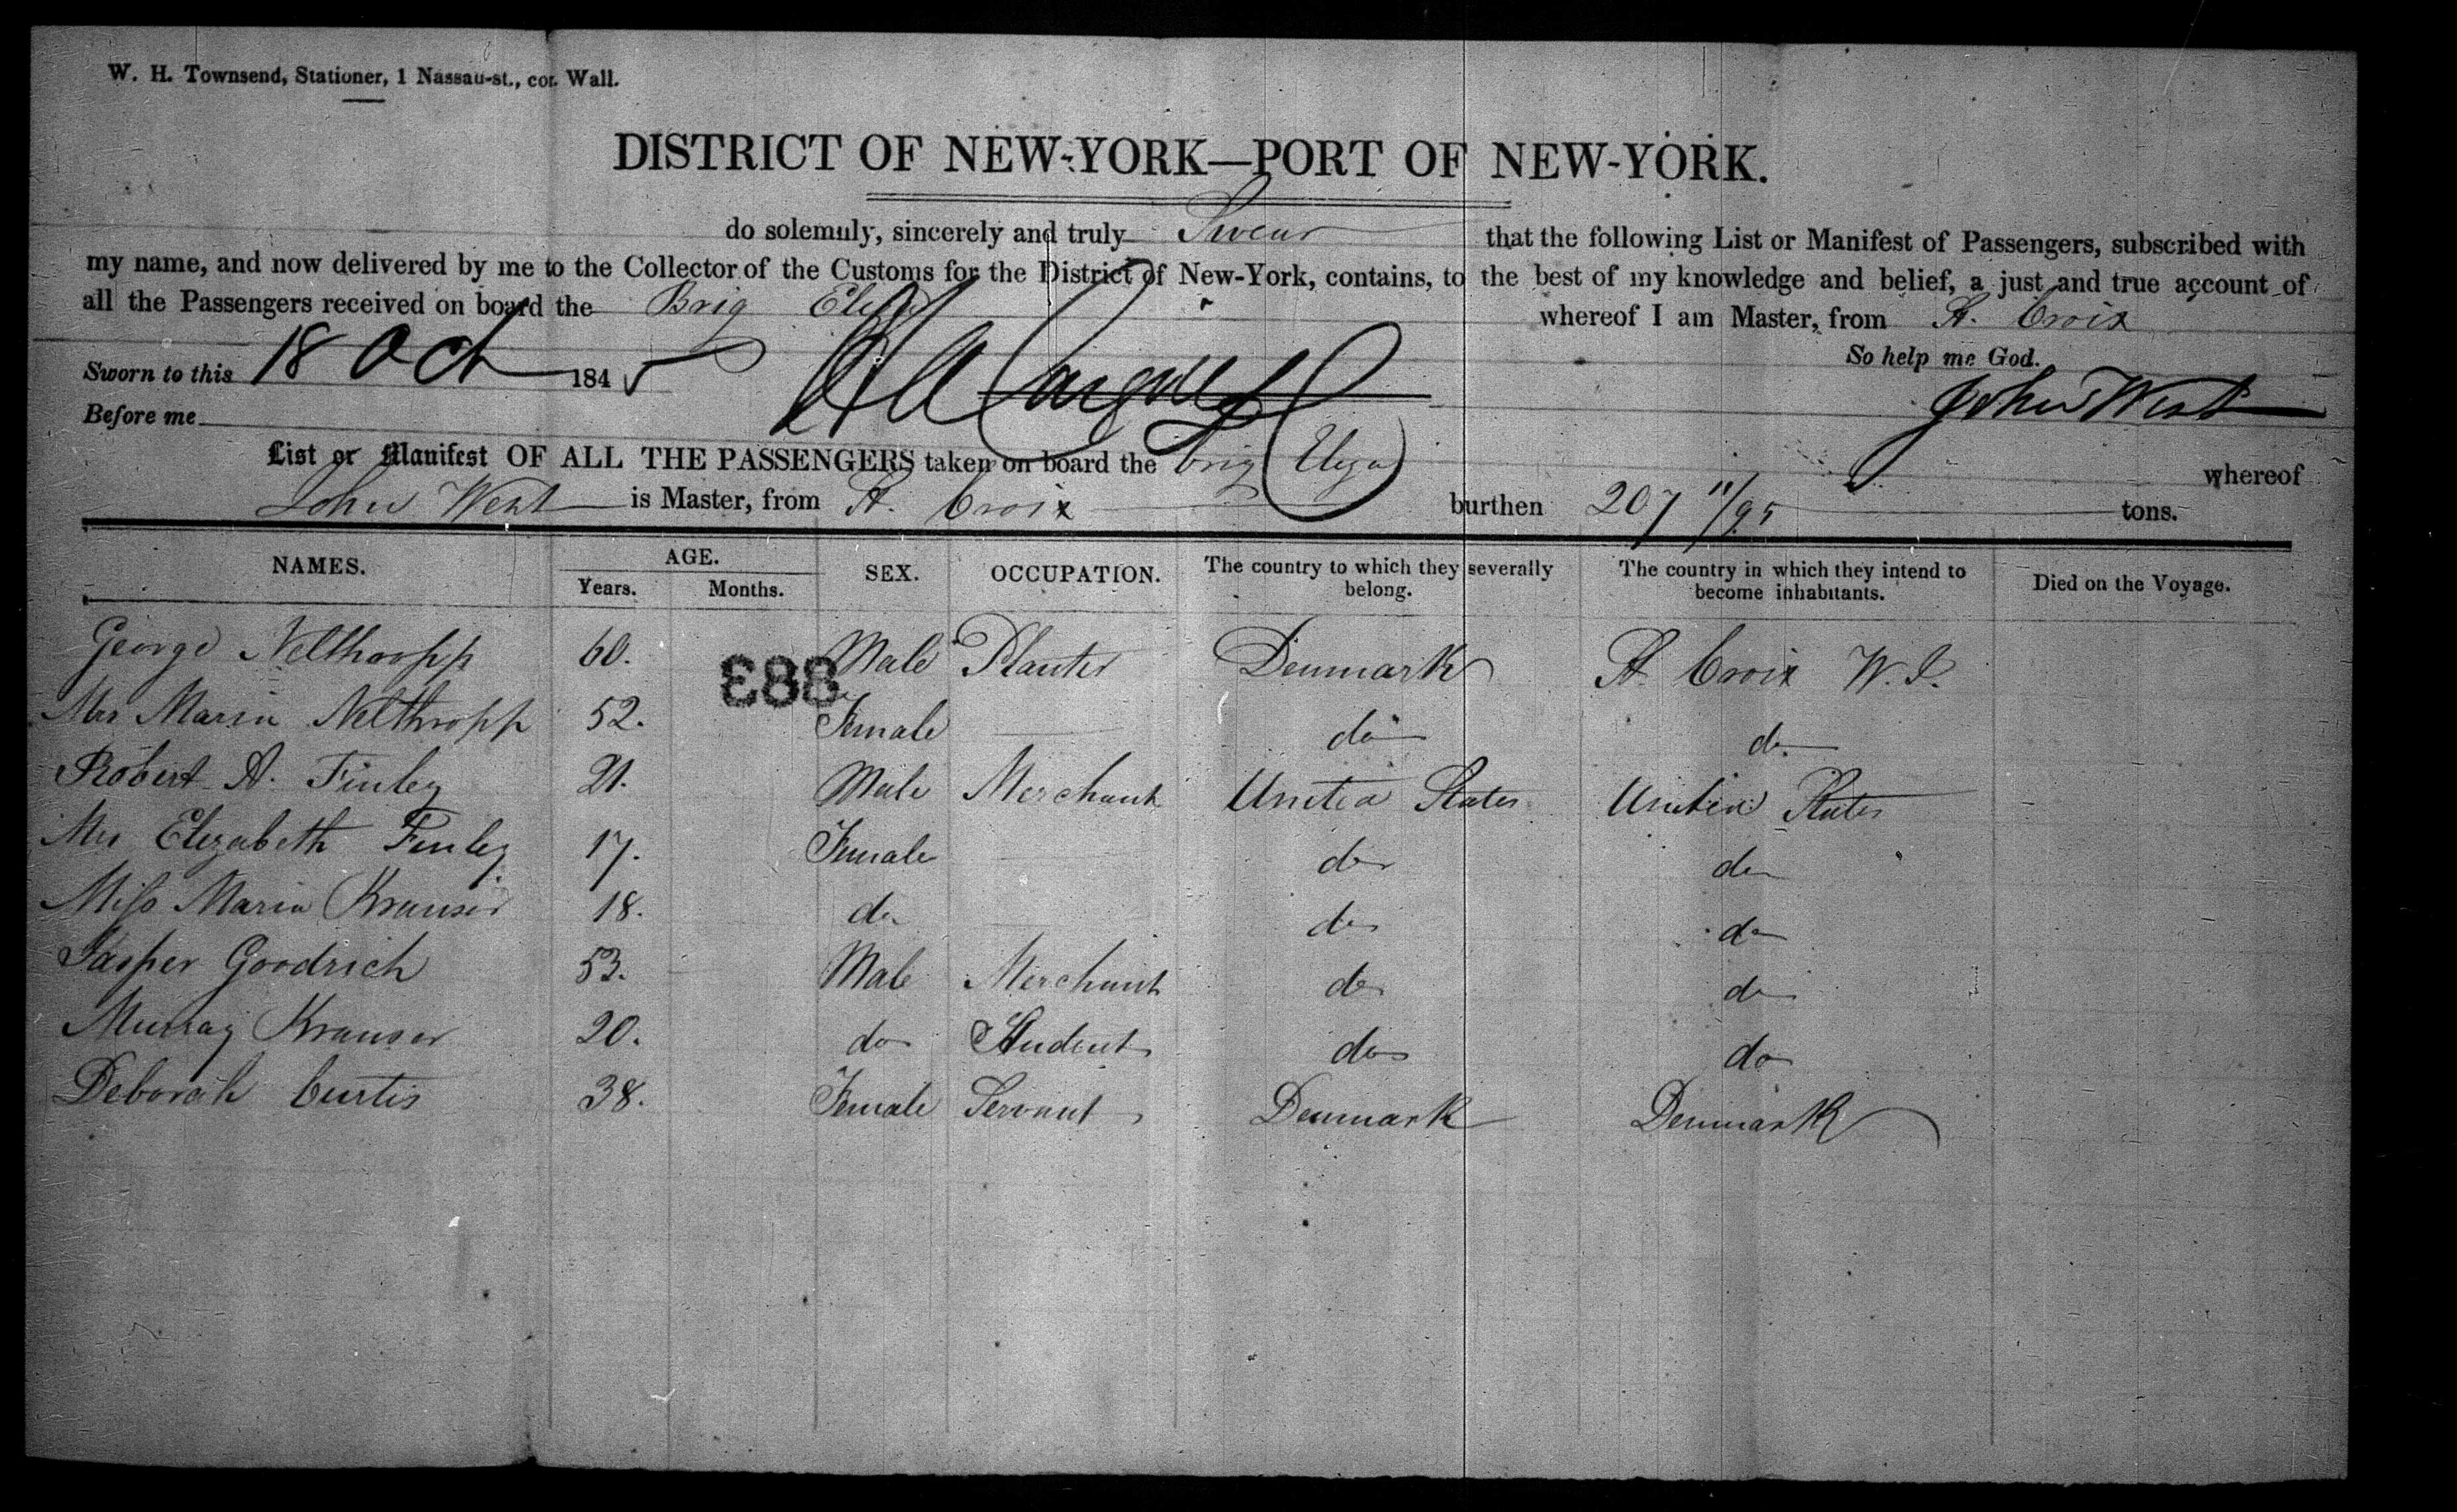 W. H. Townsend, Stationer, 1 Nassau-st., cor. Wall.
DISTRICT OF NEW-YORK—PORT OF NEW-YORK.
do solemnly, sincerely and truly Swear that the following List or Manifest of Passengers, subscribed with
my name, and now delivered by me to the Collector of the Customs for the District of New-York, contains, to the best of my knowledge and belief, a just and true account of
all the Passengers received on board the Brig Eliza whereof I am Master, from St. Croix
So help me God.
Sworn to this 18 Oct 1845
John West
Before me
List or Manifest OF ALL THE PASSENGERS taken on board the brig Eliza whereof
John West is Master, from St. Croix burthen 207 11/95 tons.
NAMES. AGE. SEX. OCCUPATION. The country to which they severally belong. The country in which they intend to become inhabitants. Died on the Voyage.
Years. Months.
George Nelthropp 60. Male Planter Denmark St. Croix W. I.
883
Mrs Maria Nelthropp 52. Female do do
Robert A. Finley 21. Male Merchant United States United States
Mrs Elizabeth Finley 17. Female do do
Miss Maria Krauser 18. do do do
Jasper Goodrich 53. Male Merchant do do
Murray Krauser 20. do Student do do
Deborah Curtis 38. Female Servant Denmark Denmark